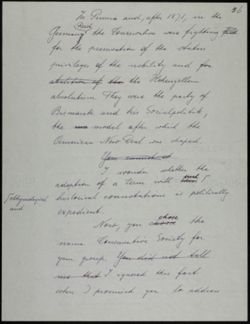 36
In Prussia and, after 1871, in the
German Reich the Conservatives was fighting
for the preservation of the
privileges of the nobility and for
the Hohenzollern
absolutism. They were the party of
Bismarck and his Sozialpolitik,
the model after which the
American New Deal was shaped.
You cannot
I wonder whether the
adoption of a term with such
historical connotations is politically
expedient.
Now, you chose the
name Conservative Society for
your group. You did not tell
me that I ignored this fact
when I promised you to address